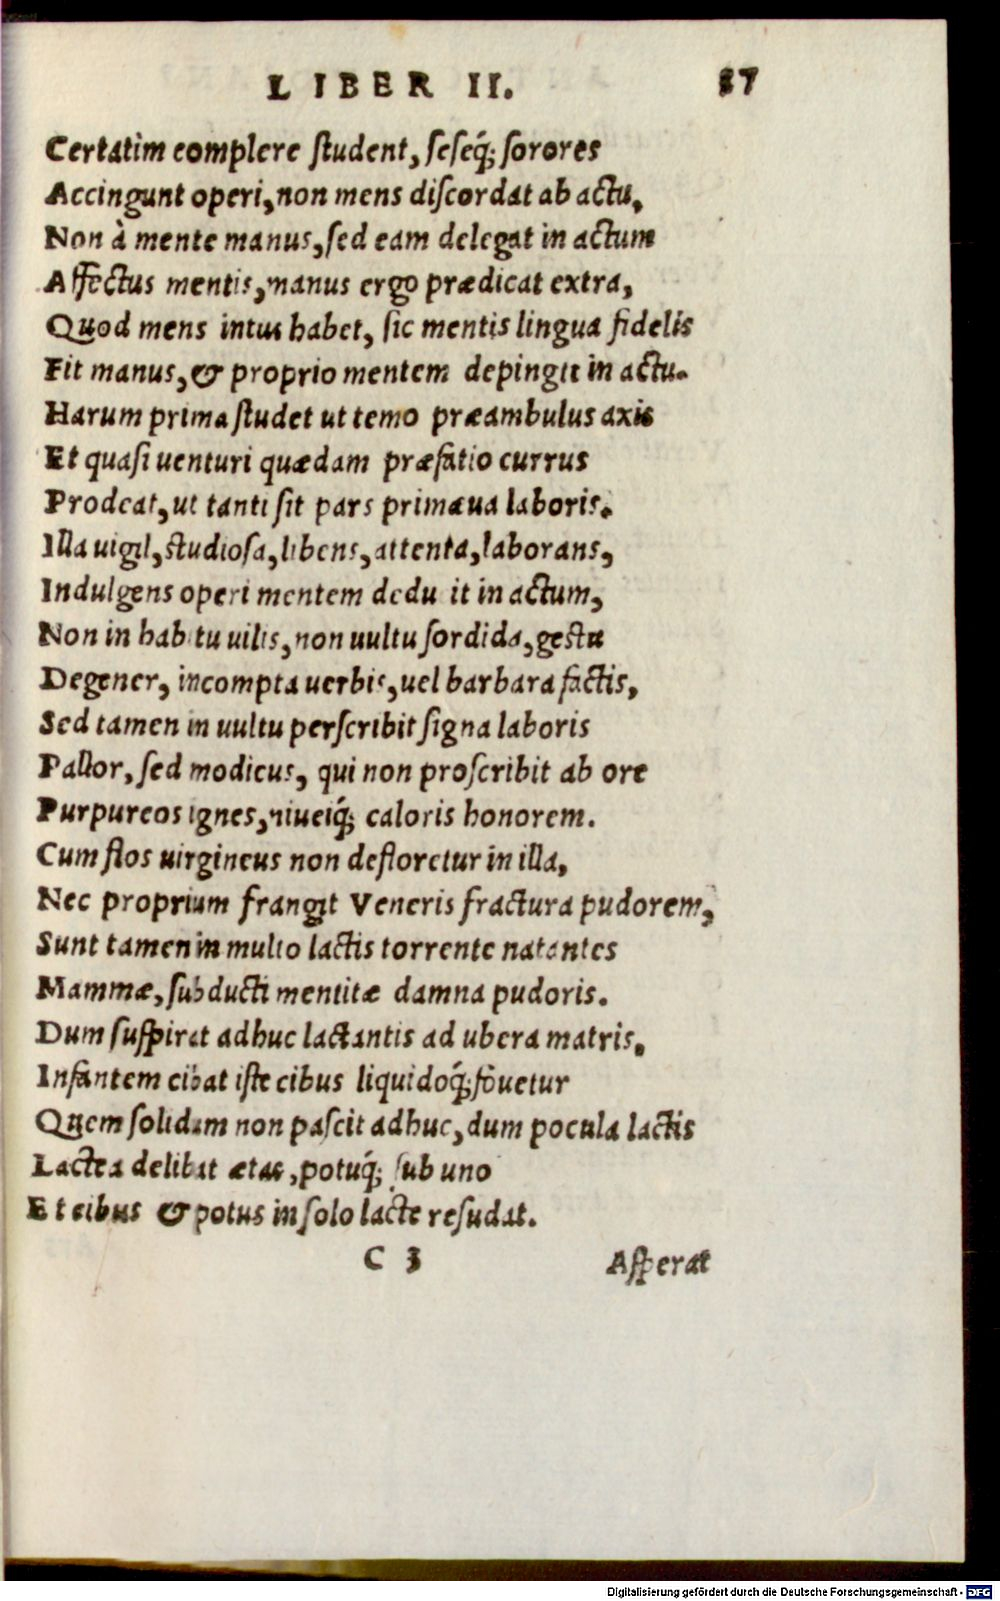 LIBER II. 37
Certatim complere student, seseq́; sorores
Accingunt operi, non mens discordat ab actu,
Non à mente manus, sed eam delegat in actum
Affectus mentis, manus ergo prædicat extra,
Quod mens intus habet, sic mentis lingua fidelis
Fit manus, & proprio mentem depingit in actu.
Harum prima studet ut temo præambulus axis
Et quasi uenturi quædam præfatio currus
Prodeat, ut tanti sit pars primæua laboris.
Illa uigil, studiosa, libens, attenta, laborans,
Indulgens operi mentem dedu it in actum,
Non in habitu uilis, non uultu sordida, gestu
Degener, incompta uerbis, uel barbara factis,
Sed tamen in uultu perscribit signa laboris
Pallor, sed modicus, qui non proscribit ab ore
Purpureos ignes, niueiq́; caloris honorem.
Cum flos uirgineus non defloretur in illa,
Nec proprium frangit Veneris fractura pudorem,
Sunt tamen in multo lactis torrente natantes
Mammæ, subducti mentitæ damna pudoris.
Dum suspirat adhuc lactantis ad ubera matris,
Infantem cibat iste cibus liquidoq́; fouetur
Quem solidam non pascit adhuc, dum pocula lactis
Lactea delibat ætas, potuq́; sub uno
Et cibus & potus in solo lacte resudat.
C 3 Asperat
Digitalisierung gefördert durch die Deutsche Forschungsgemeinschaft - DFG